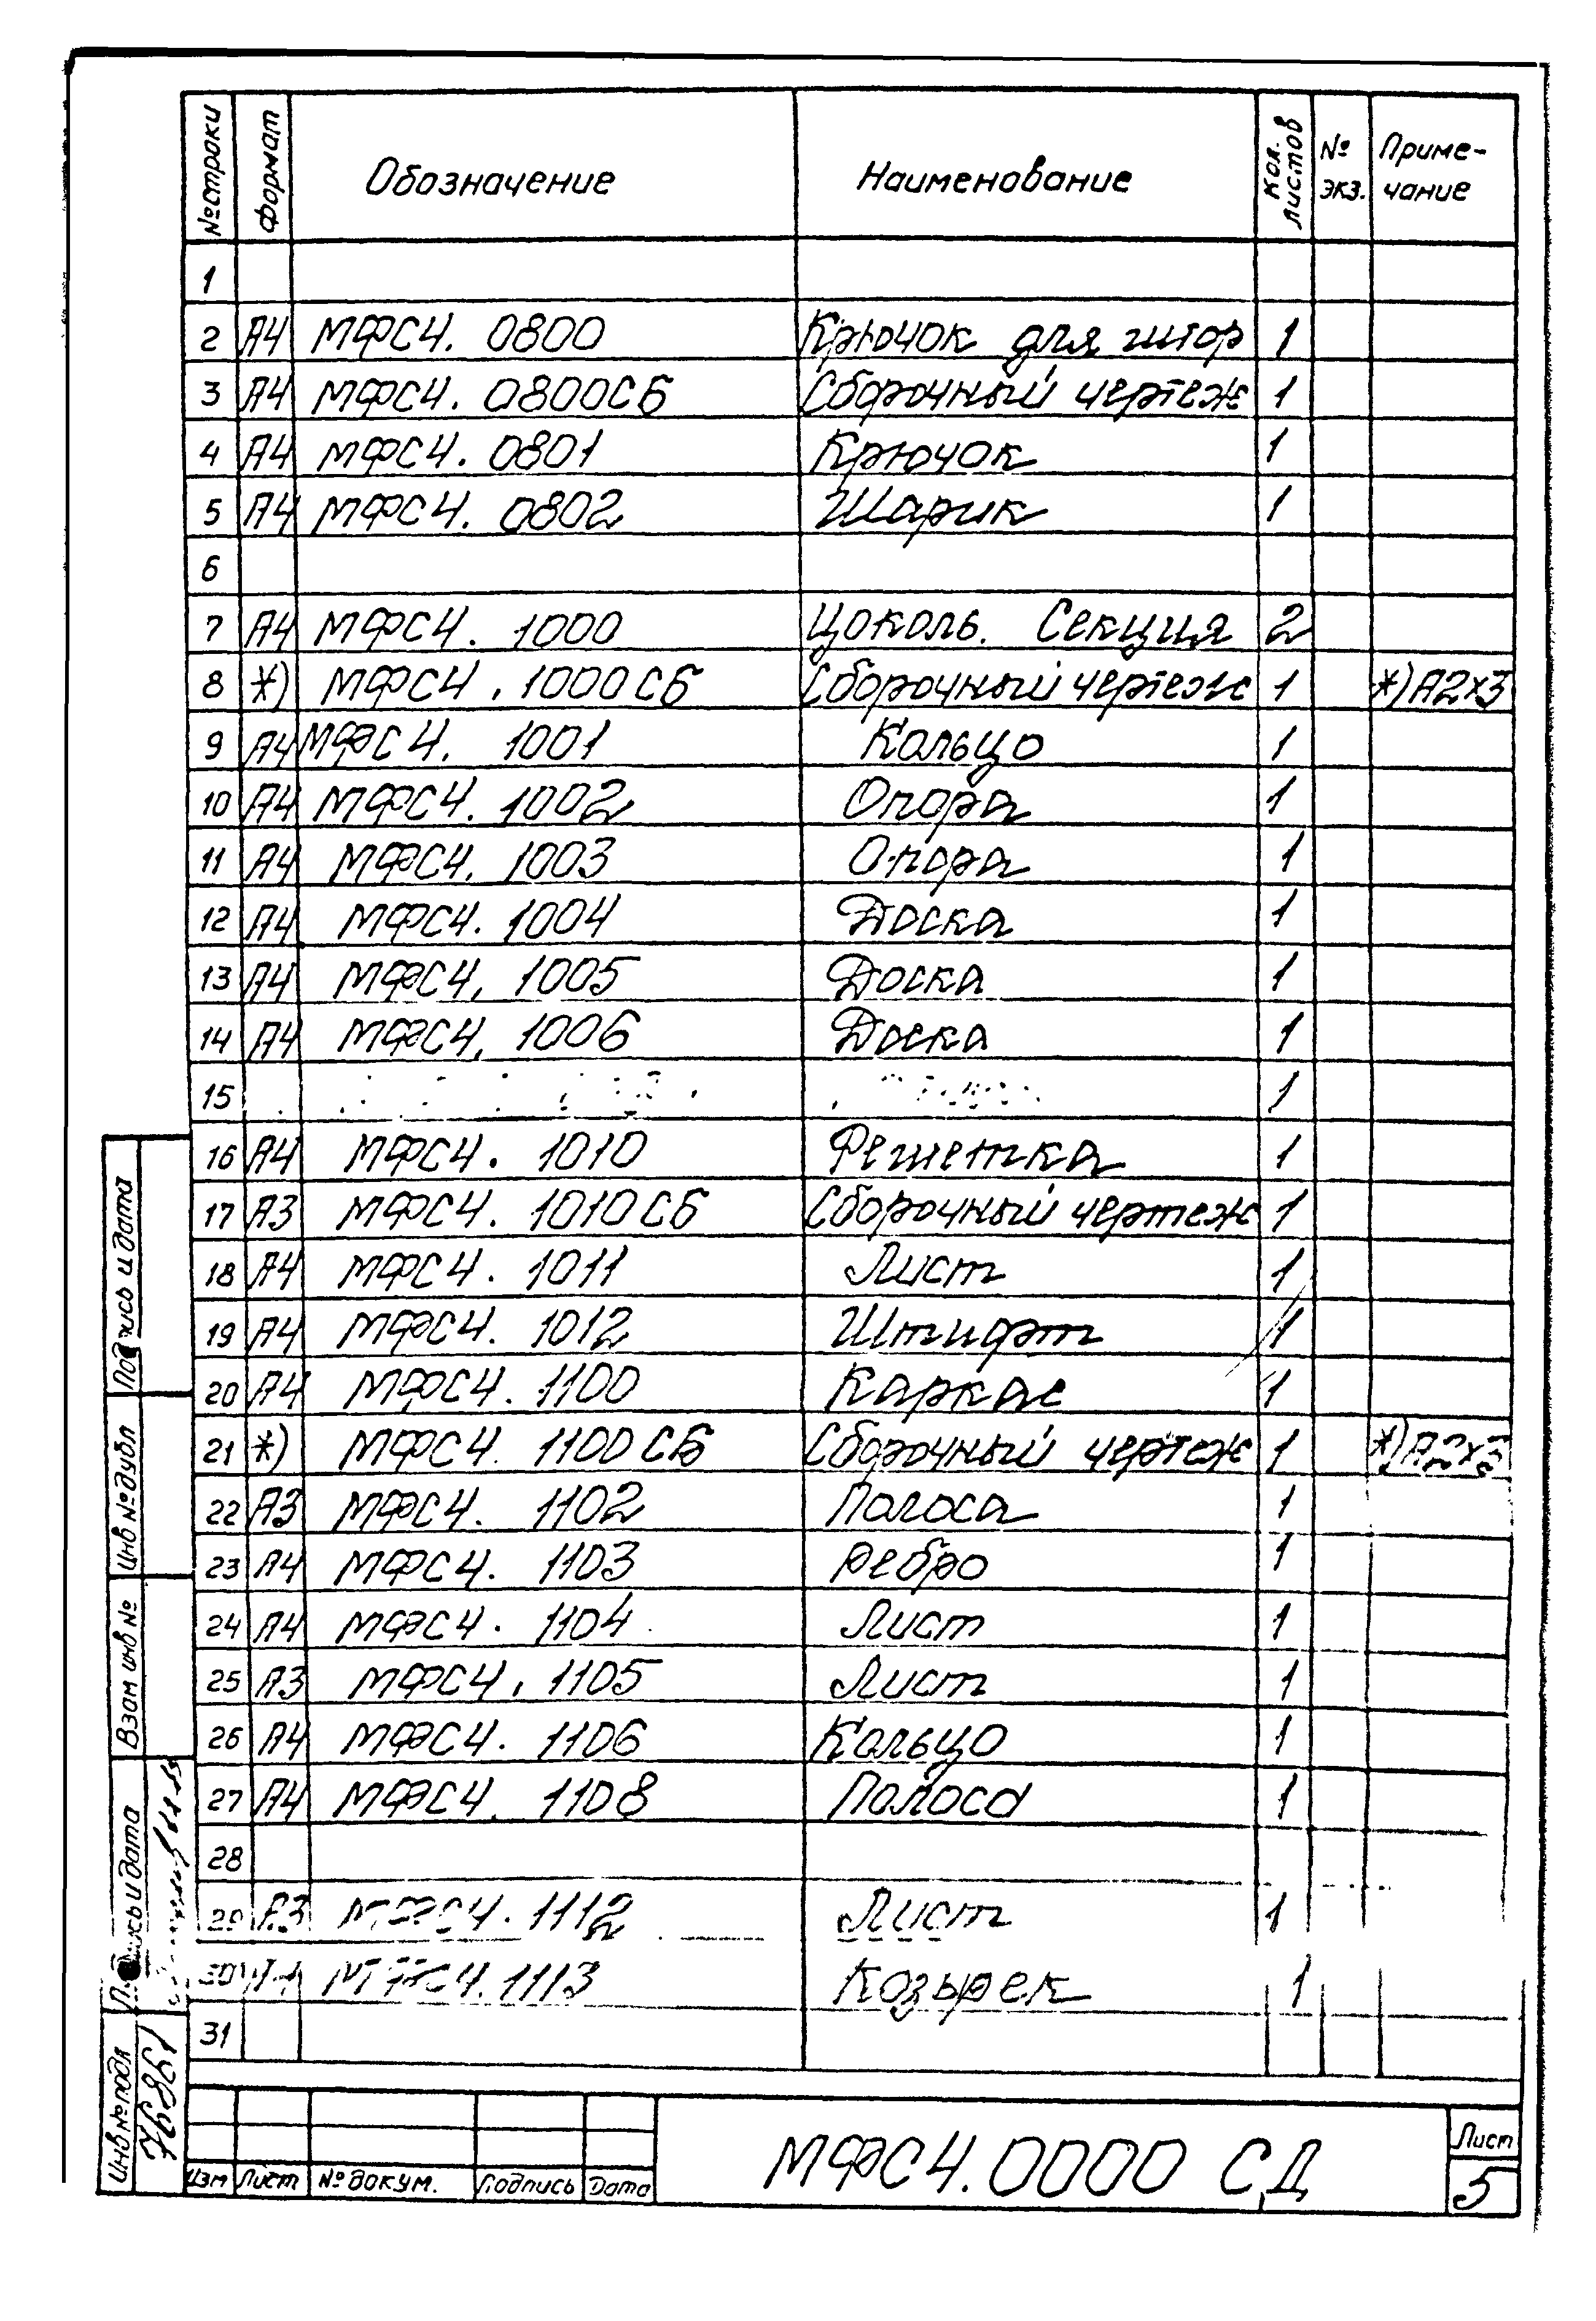 № строки Формат Обозначение Наименование Кол. листов № экз. Примечание
1
2 А4 МФС4. 0800 Крючок для штор 1
3 А4 МФС4. 0800СБ Сборочный чертеж 1
4 А4 МФС4. 0801 Крючок 1
5 А4 МФС4. 0802 Шарик 1
6
7 А4 МФС4. 1000 Цоколь. Секция 2
8 *) МФС4. 1000СБ Сборочный чертеж 1 *) А2х3
9 А4 МФС4. 1001 Кольцо 1
10 А4 МФС4. 1002 Опора 1
11 А4 МФС4. 1003 Опора 1
12 А4 МФС4. 1004 Доска 1
13 А4 МФС4. 1005 Доска 1
14 А4 МФС4. 1006 Доска 1
15 1
16 А4 МФС4. 1010 Решетка 1
17 А3 МФС4. 1010СБ Сборочный чертеж 1
18 А4 МФС4. 1011 Лист 1
19 А4 МФС4. 1012 Штифт 1
20 А4 МФС4. 1100 Каркас 1
21 *) МФС4. 1100СБ Сборочный чертеж 1 *) А2х3
22 А3 МФС4. 1102 Полоса 1
23 А4 МФС4. 1103 Ребро 1
24 А4 МФС4. 1104 Лист 1
25 А3 МФС4. 1105 Лист 1
26 А4 МФС4. 1106 Кольцо 1
27 А4 МФС4. 1108 Полоса 1
28
29 А3 МФС4. 1112 Лист 1
30 А4 МФС4. 1113 Козырек 1
31
Подпись и дата
Инв № дубл
Взам инв №
Подпись и дата
Инв № подл 76861
Изм Лист № докум. Подпись Дата
МФС4.0000 СД
Лист
5